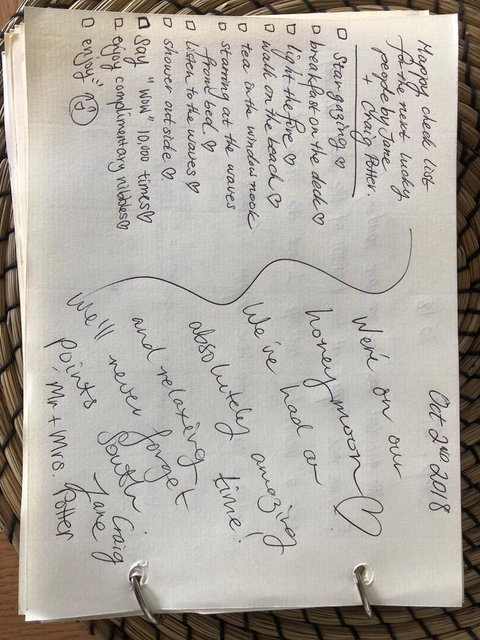 Happy check list
for the next lucky
people by Jane
+ Craig Potter.
Stargazing ♡
breakfast on the deck ♡
light the fire ♡
walk on the beach ♡
tea in the window nook
starring at the waves
from bed ♡
listen to the waves ♡
shower outside ♡
say "wow" 10,000 times ♡
enjoy complimentary nibbles ♡
enjoy!
Oct 2nd 2018
We're on our
honeymoon ♡
We've had a
absolutely amazing
and relaxing time!
We'll never forget
South
points
Craig
Jane
Mr + Mrs. Potter